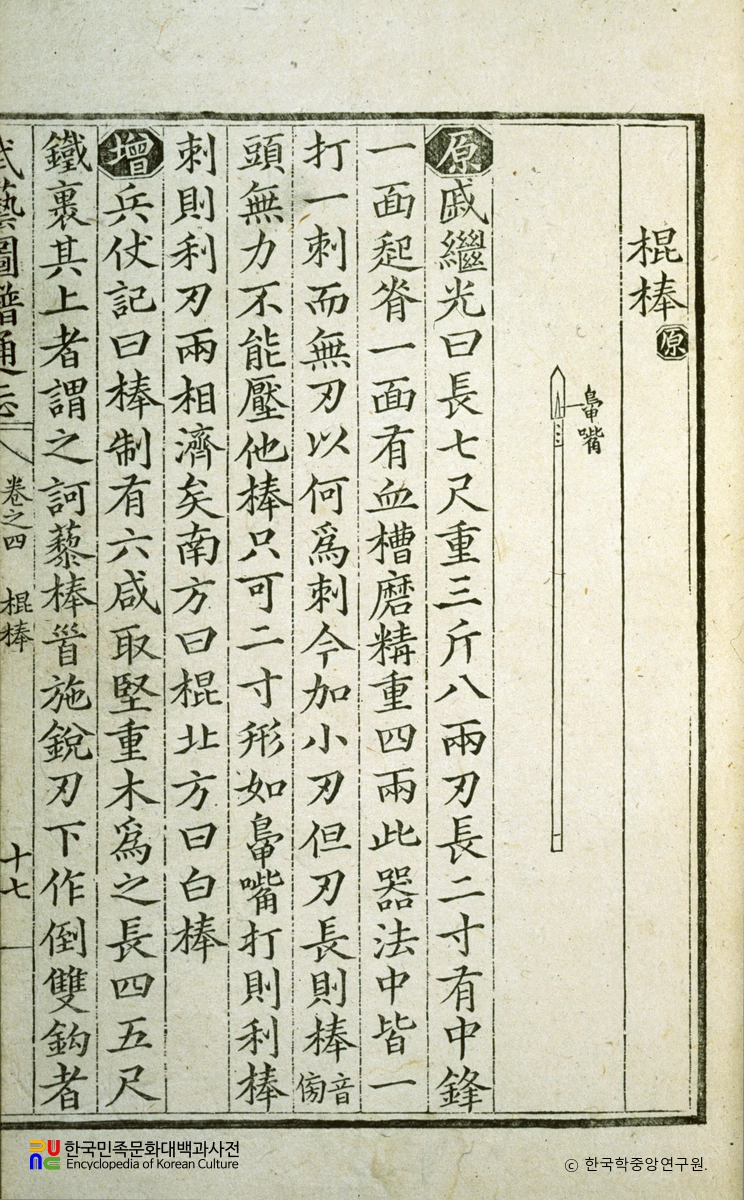 棍棒 原
鼻嘴
原 戚繼光曰長七尺重三斤八兩刃長二寸有中鋒
一面起脊一面有血槽磨精重四兩此器法中皆一
打一刺而無刃以何爲刺今加小刃但刃長則棒 音傍
頭無力不能壓他棒只可二寸形如鼻嘴打則利棒
刺則利刃兩相濟矣南方曰棍北方曰白棒
增 兵仗記曰棒制有六咸取堅重木爲之長四五尺
鐵裹其上者謂之訶藜棒首施銳刃下作倒雙鉤者
武藝圖譜通志 卷之四 棍棒 十七
한국민족문화대백과사전
Encyclopedia of Korean Culture
© 한국학중앙연구원.